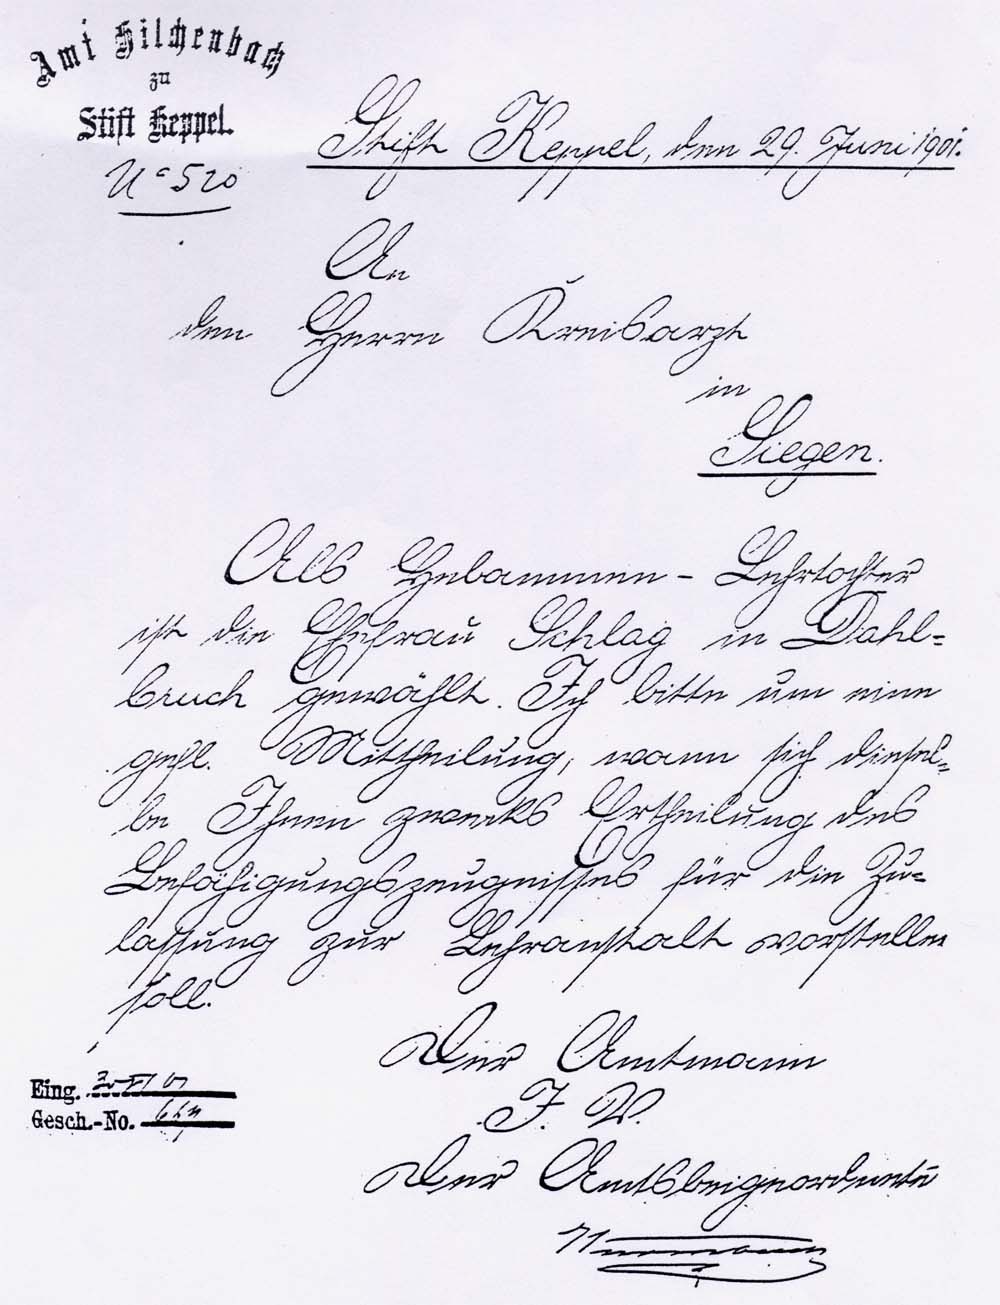 Amt Hilchenbach
zu
Stift Keppel.
N° 520
Stift Keppel, den 29. Juni 1901.
An
den Herrn Kreisarzt
in
Siegen.
Als Hebammen-Lehrtochter
ist die Ehefrau Schlag in Dahl-
bruch gewählt. Ich bitte um eine
gefl. Mittheilung, wann sich diesel-
be Ihnen zwecks Ertheilung des
Befähigungszeugnisses für die Zu-
lassung zur Lehranstalt vorstellen
soll.
Der Amtmann
J. V.
Der Amtsbeigeordnete
Eing.
Gesch.-No.